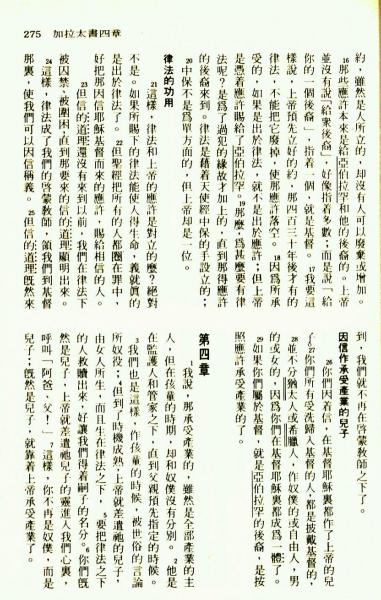 275 加拉太書四章
約，雖然是人所立的，却沒有人可以廢棄或增加。
16那些應許本來是給亞伯拉罕和他的後裔的。上帝
並沒有說「給衆後裔」，好像指着多數；而是說「給
你的一個後裔」，指着一個，就是基督。17我要這
樣說，上帝預先立好的約，那四百三十年後才有的
律法，不能把它廢掉，使那應許落空。18因爲所承
受的，如果是出於律法，就不是出於應許；但上帝
是憑着應許賜給了亞伯拉罕。19那麼，爲甚麼要有律
法呢？是爲了過犯的緣故才加上的，直到那得應許
的後裔來到。律法是藉着天使經中保的手設立的；
20中保不是爲單方面的，但上帝却是一位。
律法的功用
21這樣，律法和上帝的應許是對立的麼？絕對
不是。如果所賜下的律法能使人得生命，義就眞的
是出於律法了。22但聖經把所有的人都圈在罪中，
好把那因信耶穌基督而來的應許，賜給相信的人。
23但信的道理還沒有來到以前，我們在律法下
被囚禁、被圍困，直到那要來的信的道理顯明出來。
24這樣，律法成了我們的啓蒙敎師，領我們到基督
那裏，使我們可以因信稱義。25但信的道理旣然來
到，我們就不再在啓蒙敎師之下了。
因信作承受產業的兒子
26你們因着信，在基督耶穌裏都作了上帝的兒
子。27你們所有受洗歸入基督的人，都是披戴基督的，
28並不分猶太人或希臘人，作奴僕的或自由人，男
的或女的，因爲你們在基督耶穌裏都成爲一體了。
29如果你們屬於基督，就是亞伯拉罕的後裔，是按
照應許承受產業的了。
第四章
1我說，那承受產業的，雖然是全部產業的主
人，但在孩童的時期，却和奴僕沒有分別。2他是
在監護人和管家之下，直到父親預先指定的時候。
3我們也是這樣，作孩童的時候，被世俗的言論
所奴役；4但到了時機成熟，上帝就差遣祂的兒子，
由女人所生，而且生在律法之下，5要把律法之下
的人救贖出來，好讓我們得着嗣子的名分。6你們旣
然是兒子，上帝就差遣祂兒子的靈進入我們心裏，
呼叫「阿爸、父！」7這樣，你不再是奴僕，而是
兒子；旣然是兒子，就靠着上帝承受產業了。